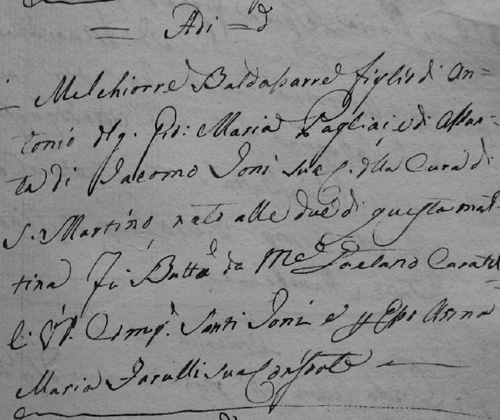 Adi = d
Melchiorre Baldassarre figlio di An=
tonio del q. Gio: Maria Pagliai, e di Assun=
ta di Jacomo Joni sua C. della Cura di
S. Martino, nato alle due di questa mat
tina fu Batt.o da Me Gaetano Caratel
li: Comp. Santi Joni e p Esso Anna
Maria Jarulli sua Consorte